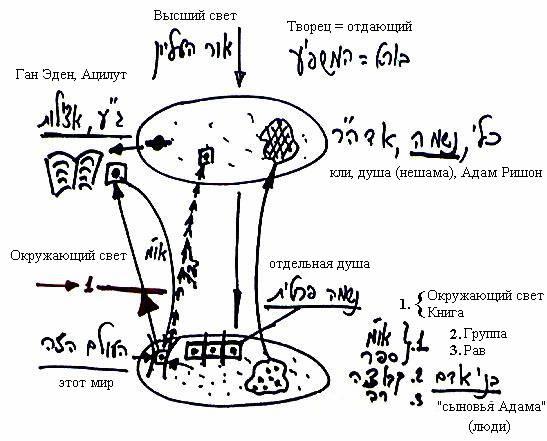 Высший свет
אור העליון
Творец = отдающий
בורא = המשפיע
Ган Эден, Ацилут
ג"ע, אצילות
כלי, נשמה, אדה"ר
кли, душа (нешама), Адам Ришон
או"מ
Окружающий свет
1
отдельная душа
נשמה פרטית
העולם הזה
этот мир
1. { Окружающий свет
Книга
2. Группа
3. Рав
או"מ } 1.
ספר
קבוצה 2.
רב 3.
בני אדם
"сыновья Адама"
(люди)